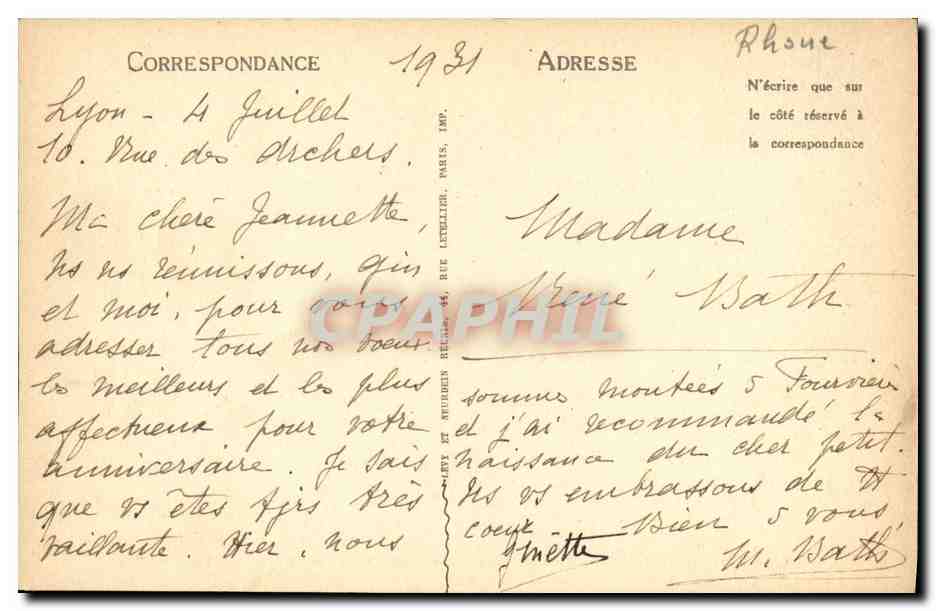 CORRESPONDANCE
1931
ADRESSE
Rhone
N'écrire que sur
le côté réservé à
la correspondance
Lyon - 4 Juillet
10. Rue des Archers.
Ma chère Jeannette,
Ns ns réunissons, Gin
et moi, pour vous
adresser tous nos voeux
les meilleurs et les plus
affectueux pour votre
anniversaire. Je sais
que vs êtes tjrs très
vaillante. Hier, nous
LÉVY ET NEURDEIN RÉUNIS, 44, RUE LETELLIER, PARIS, IMP.
Madame
René Bath
sommes montées à Fourvière
et j'ai recommandé la
naissance du cher petit.
Ns vs embrassons de tt
coeur Bien à vous
Ginette
M. Bath
CPAPHIL